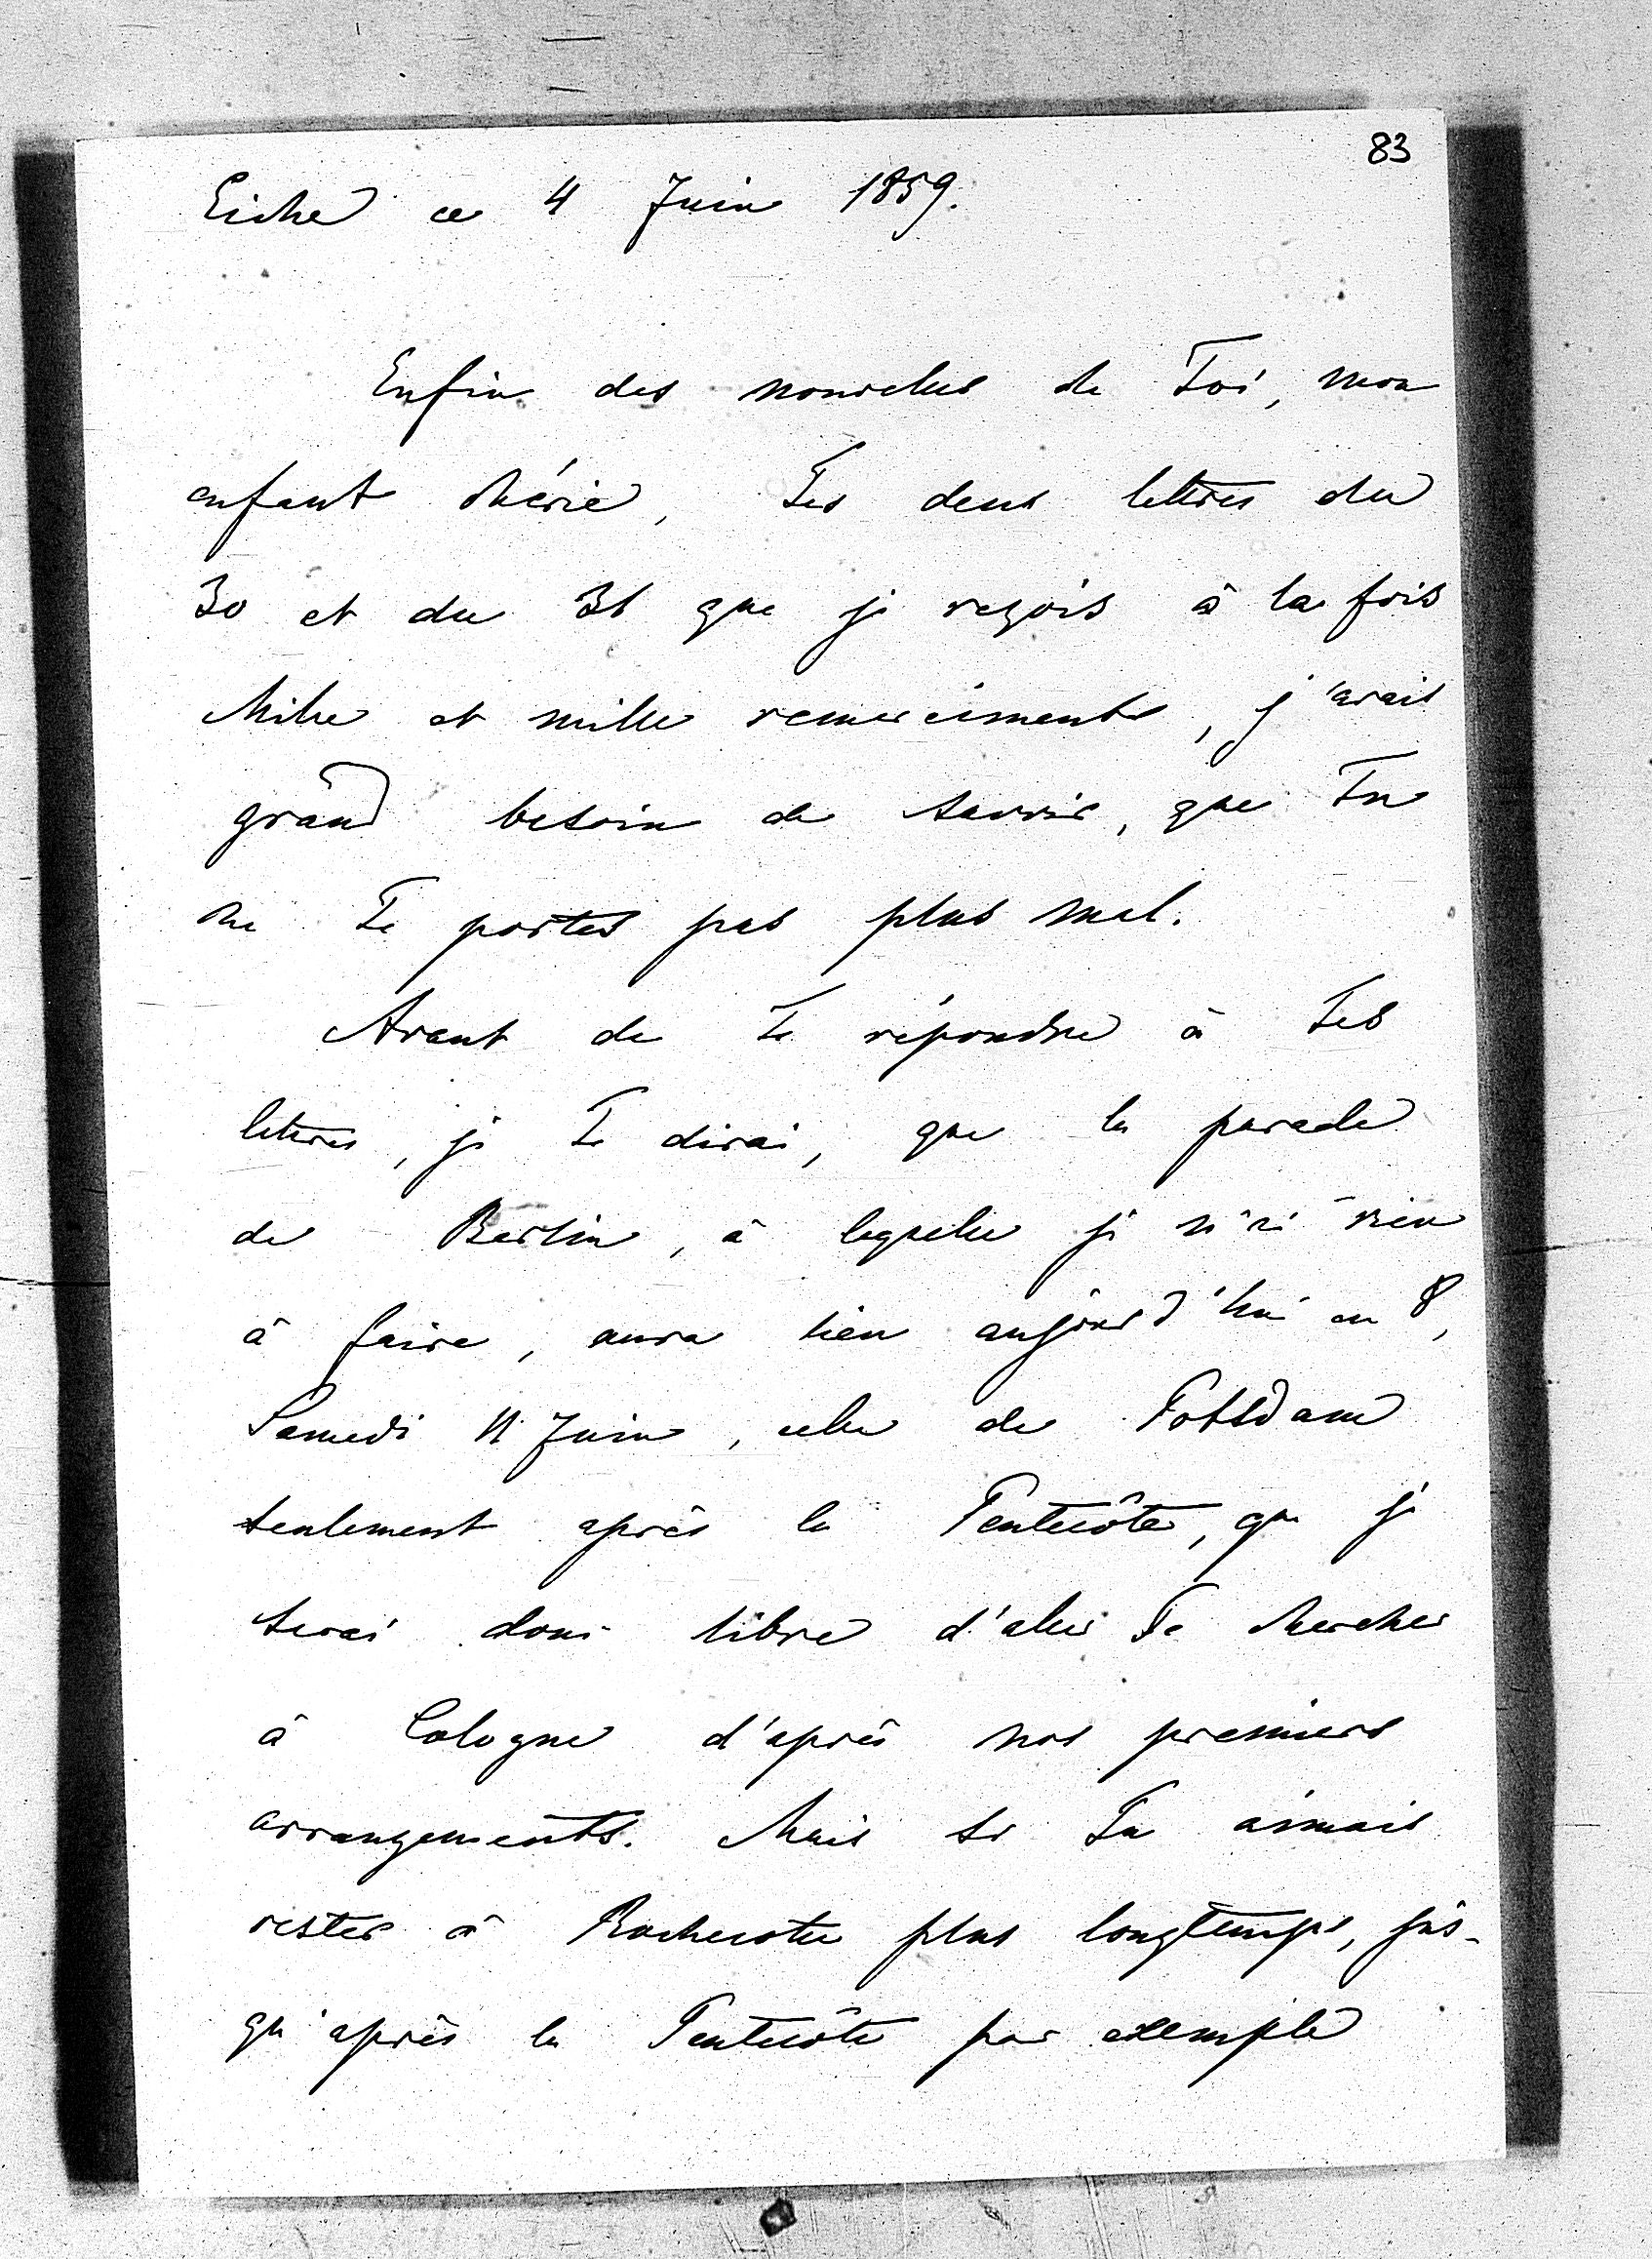 83
Eiche ce 4 Juin 1859.
Enfin des nouvelles de Toi, mon
enfant chérie, Tes deux lettres du
30 et du 31 que je reçois à la fois
Mille et mille remerciments, j'avais
grand besoin de savoir, que Tu
ne Te portes pas plus mal.
Avant de Te répondre à Tes
lettres, je Te dirai, que la parade
de Berlin, à laquelle je n'ai rien
à faire, aura lieu aujourd'hui en 8,
Samedi 11 Juin, celle de Potsdam
seulement après la Pentecôte, que je
serai donc libre d'aller Te chercher
à Cologne d'après nos premiers
arrangements. Mais si Tu aimais
rester à Rochecotte plus longtemps, jus-
qu'après la Pentecôte par exemple